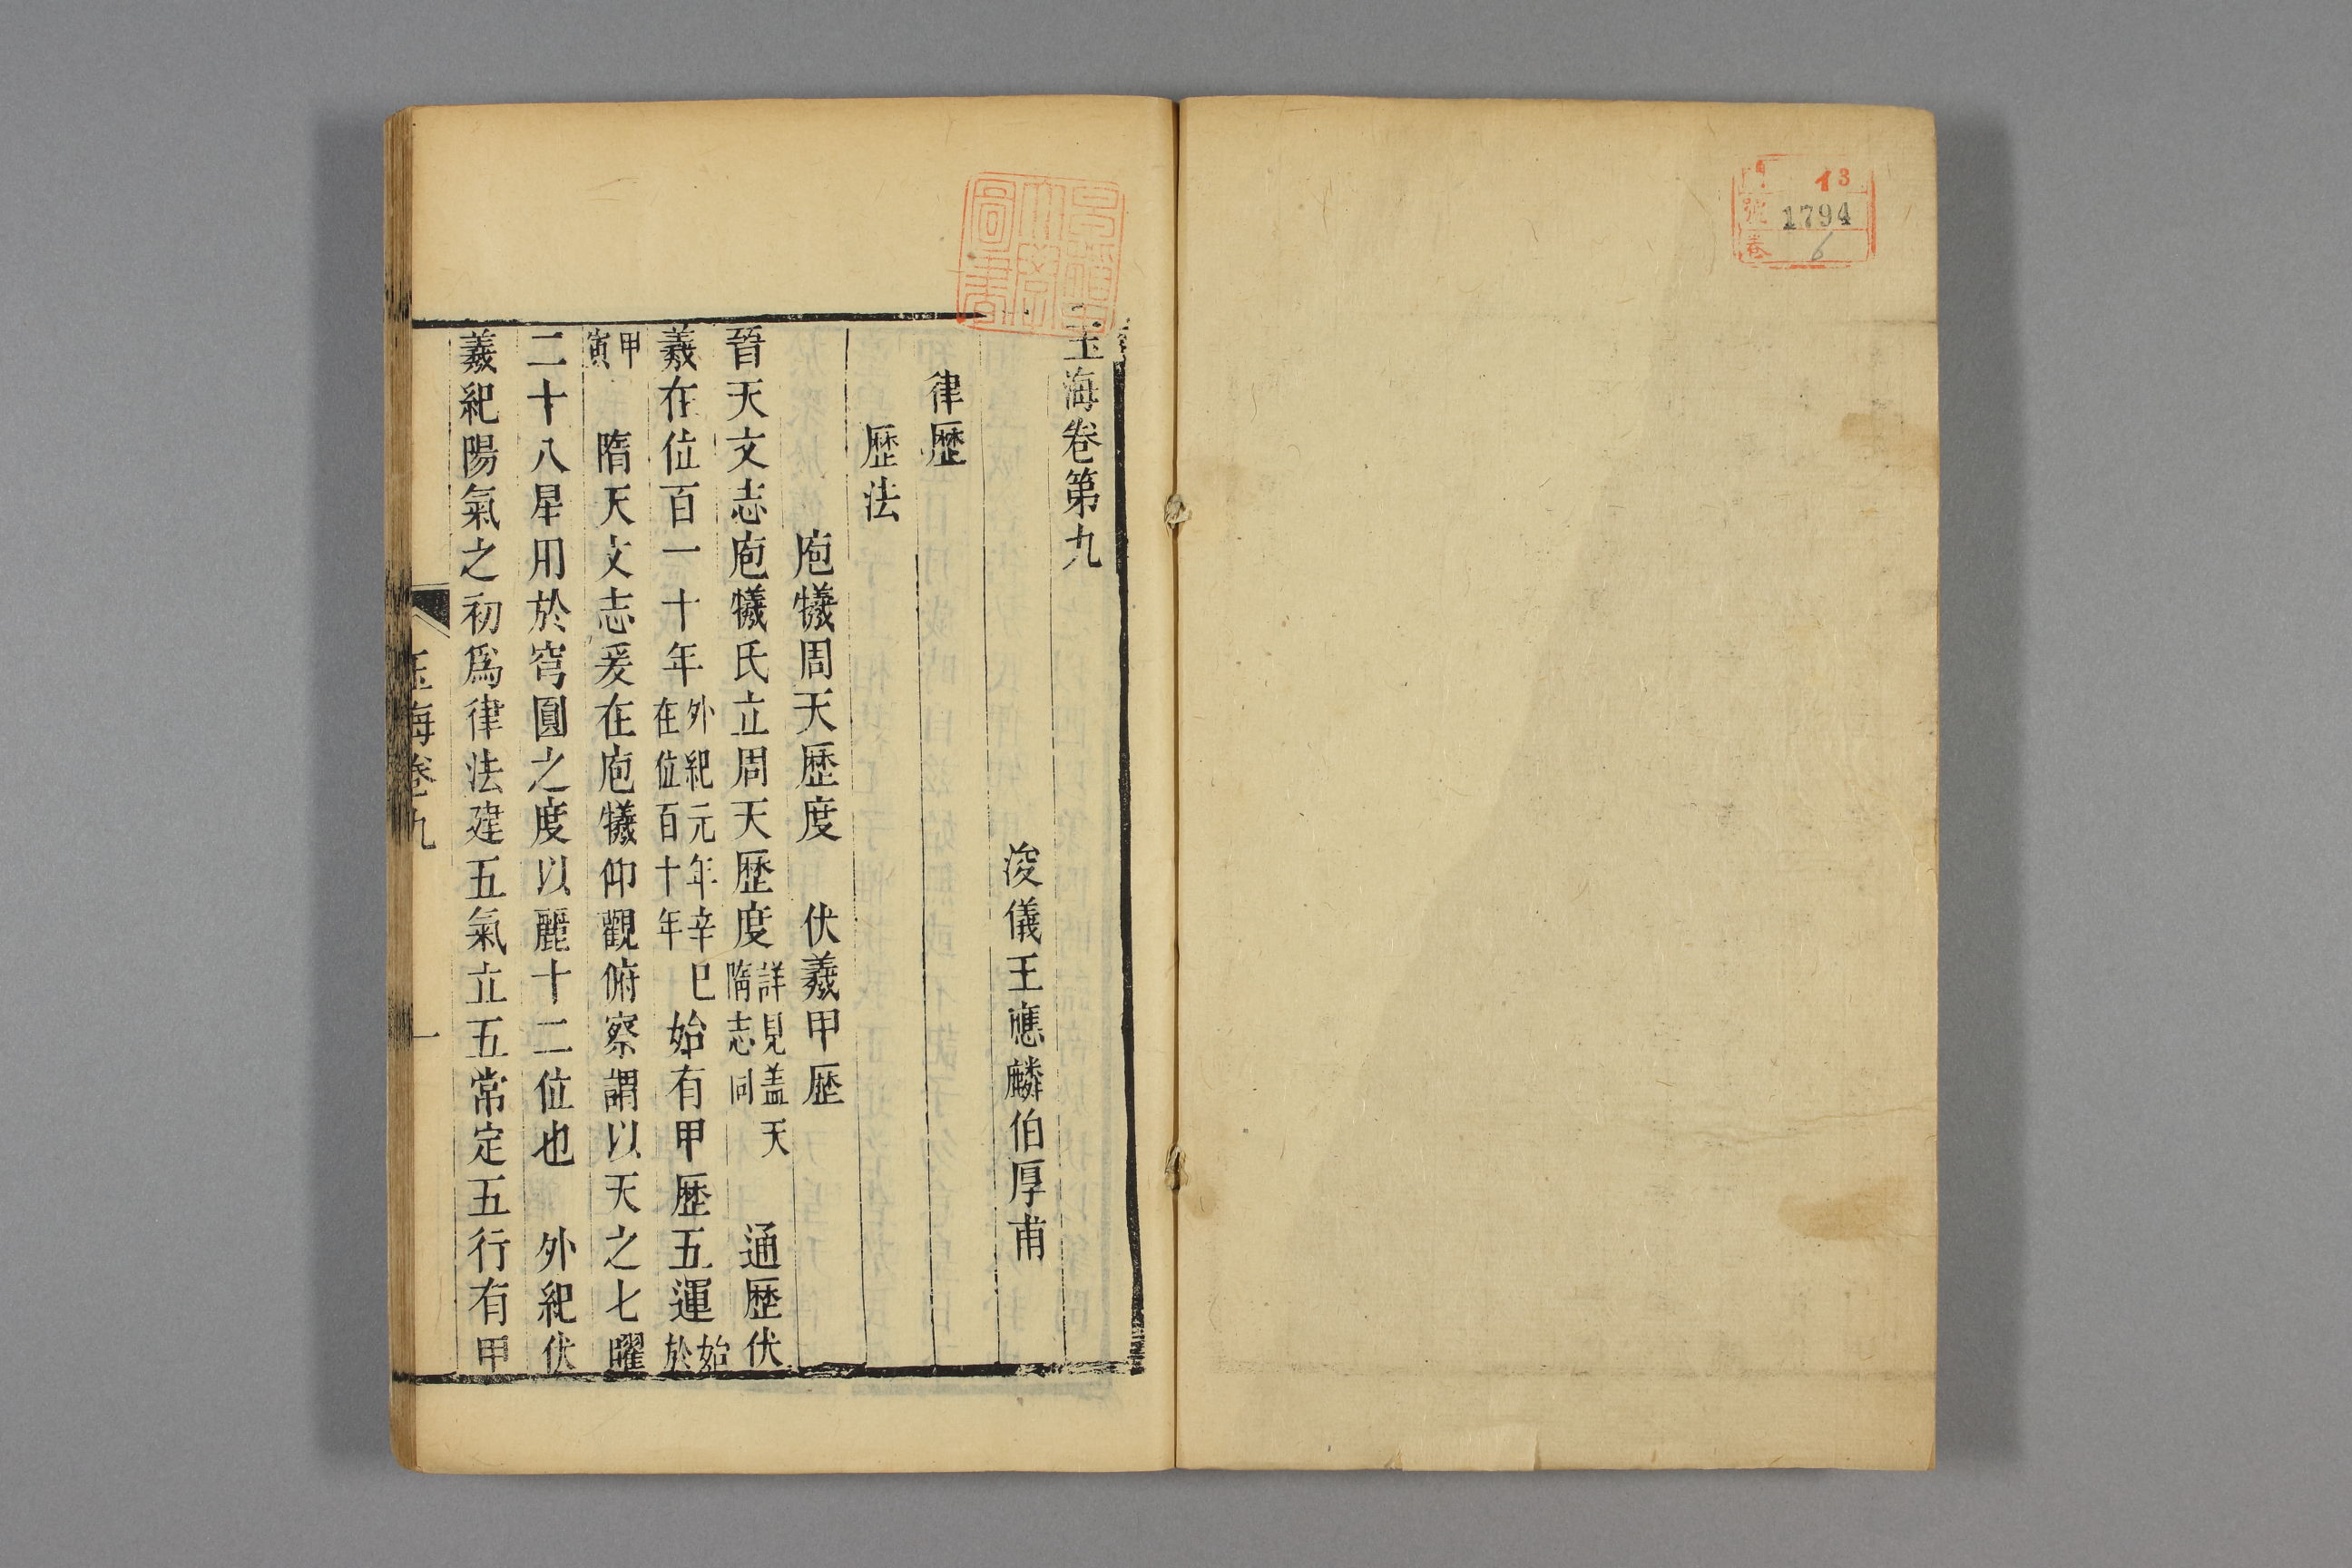 門 13
號 1794
卷 6
玉海卷第九
浚儀王應麟伯厚甫
律歷
歷法
庖犧周天歷度 伏羲甲歷
晉天文志庖犧氏立周天歷度詳見蓋天隋志同 通歷伏
羲在位百一十年外紀元年辛巳在位百十年始有甲歷五運始於
甲寅 隋天文志爰在庖犧仰觀俯察謂以天之七曜
二十八星用於穹圓之度以麗十二位也 外紀伏
羲紀陽氣之初爲律法建五氣立五常定五行有甲
玉海卷九
一